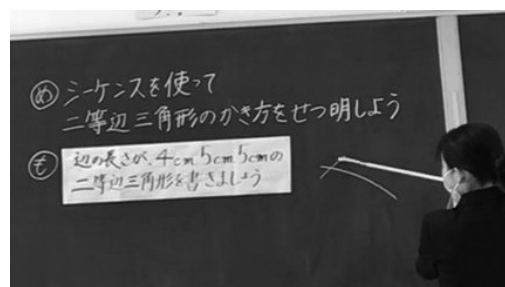 め シーケンスを使って
二等辺三角形のかき方をせつ明しよう
も 辺の長さが、4cm 5cm 5cmの
二等辺三角形を書きましょう